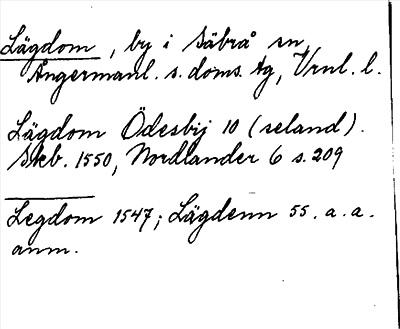 Lägdom, by i Säbrå sn,
Ångermanl. s. doms. tg, Vrnl. l.
Lägdom Ödesbij 10 (seland).
Skb. 1550, Nordlander 6 s. 209
Legdom 1547; Lägdenn 55. a. a.
anm.